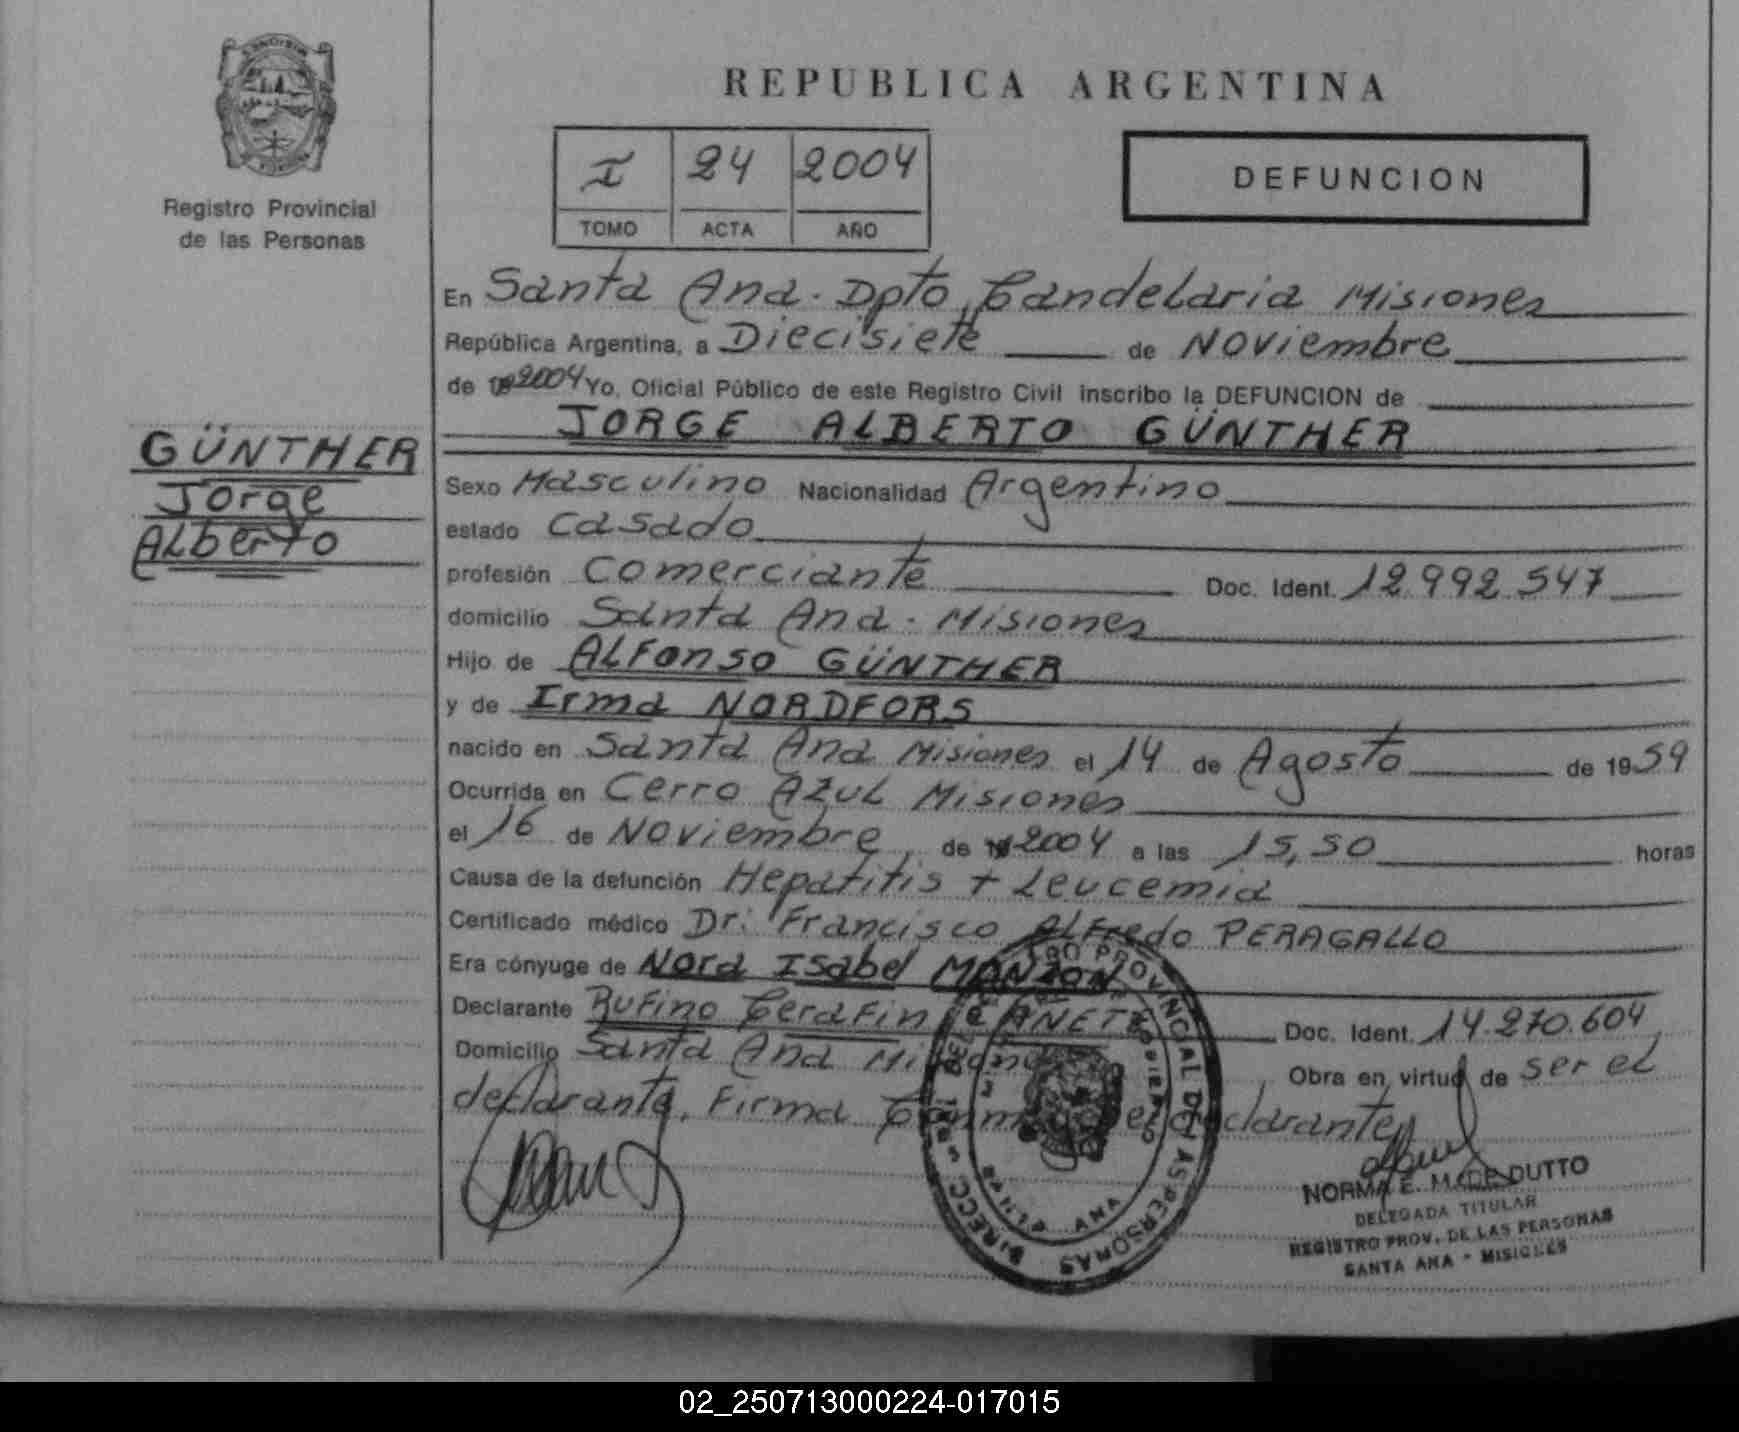 MISIONES
Registro Provincial
de las Personas
REPUBLICA ARGENTINA
I 24 2004
TOMO ACTA AÑO
DEFUNCION
En Santa Ana. Dpto, Candelaria Misiones
República Argentina, a Diecisiete de Noviembre
de 192004 Yo, Oficial Público de este Registro Civil inscribo la DEFUNCION de
JORGE ALBERTO GÜNTHER
GÜNTHER
Jorge
Alberto
Sexo Masculino Nacionalidad Argentino
estado Casado
profesión Comerciante Doc. Ident. 12.992.547
domicilio Santa Ana. Misiones
Hijo de ALFonso GÜNTHER
y de Irma NORDFORS
nacido en Santa Ana Misiones el 14 de Agosto de 1959
Ocurrida en Cerro Azul Misiones
el 16 de Noviembre, de 192004 a las 15,50 horas
Causa de la defunción Hepatitis + Leucemia
Certificado médico Dr. Francisco Alfredo PERAGALLO
Era cónyuge de Nora Isabel MONZON
Declarante Rufino Cerafin CANETE Doc. Ident. 14.270.604
Domicilio Santa Ana Misiones Obra en virtud de ser el
declarante, Firma el declarante
PROVINCIAL DE LAS PERSONAS
DIRECC.
ANA
NORMA E. M. DE DUTTO
DELEGADA TITULAR
REGISTRO PROV. DE LAS PERSONAS
SANTA ANA - MISIONES
02_250713000224-017015